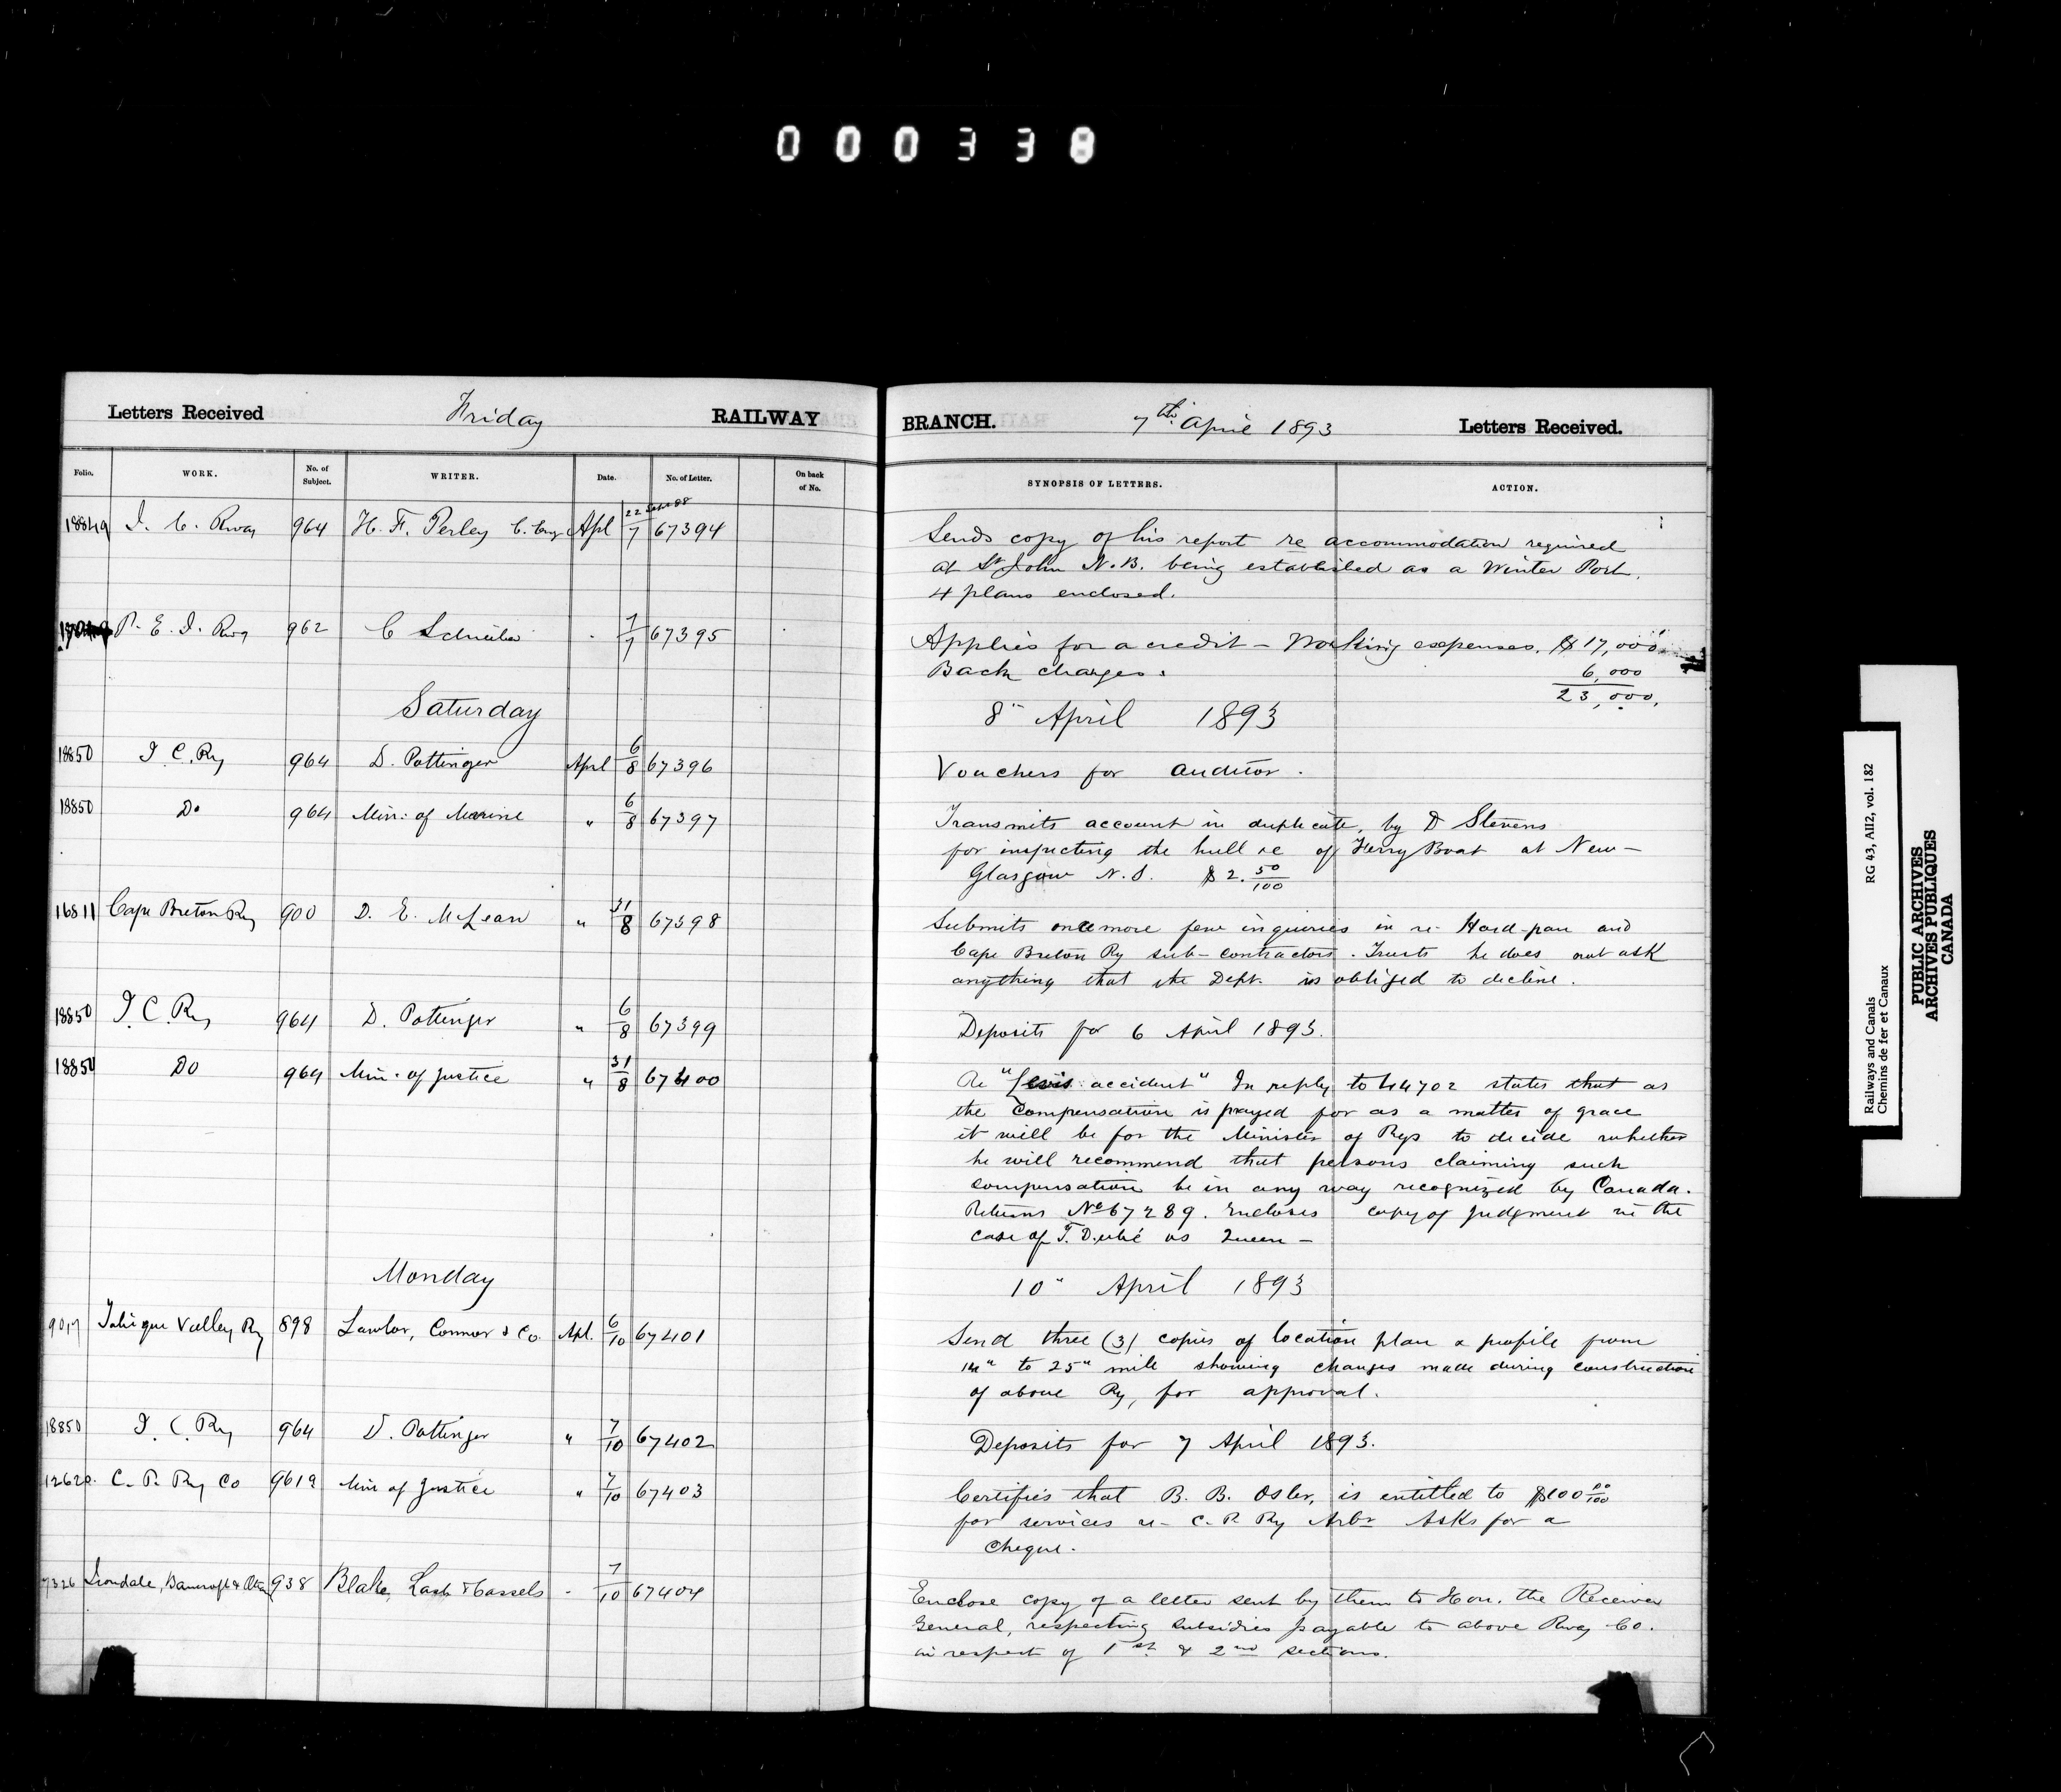 000338
Letters Received Friday RAILWAY BRANCH. 7th April 1893 Letters Received.
Folio. WORK. No. of Subject. WRITER. Date. No. of Letter. On back of No. SYNOPSIS OF LETTERS. ACTION.
22 Sept 88
18849 I. C. Rway 964 H. F. Perley C. Eng Apl /7 67394 Sends copy of his report re accommodation required
at St John N.B. being established as a Winter Port.
4 plans enclosed.
P. E. I. Rwy 962 C Schreiber " 7/7 67395 Applies for a credit – Working expenses. $17,000
Back charges: 6,000
23,000,
Saturday 8" April 1893
18850 I C. Ry 964 D. Pottinger Apl 6/8 67396 Vouchers for Auditor.
18850 Do 964 Min: of Marine " 6/8 67397 Transmits account in duplicate, by D Stevens
for inspecting the hull &c of Ferry Boat at New-
Glasgow N.S. $2. 50/100
16811 Cape Breton Ry 900 D. E. McLean " 31/8 67398 Submits once more few inquiries in re- Hard-pan and
Cape Breton Ry sub-contractors. Trusts he does not ask
anything that the Dept. is obliged to decline.
18850 I. C. Ry 964 D. Pottinger " 6/8 67399 Deposits for 6 April 1893.
18850 Do 964 Min. of Justice " 31/8 67400 Re "Levis accident" In reply to 44702 states that as
the compensation is prayed for as a matter of grace
it will be for the Minister of Rys to decide whether
he will recommend that persons claiming such
compensation be in any way recognized by Canada.
Returns No 67289. Encloses copy of judgment in the
case of T. Dubé vs Queen –
Monday 10" April 1893
Tobique Valley Ry 898 Lawlor, Connor & Co. Apl. 6/10 67401 Send three (3) copies of location plan & profile from
14" to 25" mile showing changes made during construction
of above Ry, for approval.
18850 I. C. Ry 964 D. Pottinger " 7/10 67402 Deposits for 7 April 1893.
C. P. Ry Co 9612 Min of Justice " 7/10 67403 Certifies that B. B. Osler, is entitled to $100 00/100
for services re- C. P. Ry Arbn Asks for a
cheque.
Irondale, Bancroft & Otta 938 Blake, Lash & Cassels " 7/10 67404 Enclose copy of a letter sent by them to Hon. the Receiver
General, respecting subsidies payable to above Rway Co.
in respect of 1st & 2nd sections.
Railways and Canals RG 43, AII2, vol. 182
Chemins de fer et Canaux
PUBLIC ARCHIVES
ARCHIVES PUBLIQUES
CANADA